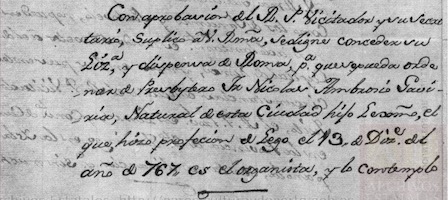 Con aprobacion del R. P. Vicitador, y su Secre-
tario, Suplico a V. Rma, se digne conceder su
Liz.a, y dispensa de Roma, p.a que pueda orde-
narse de Presbytero Fr. Nicolas Ambrosio
Natural de esta Ciudad hijo el
que, hizo profecion de Lego el 13. de Diz.e del
año de 767 es el organista, y lo contemplo